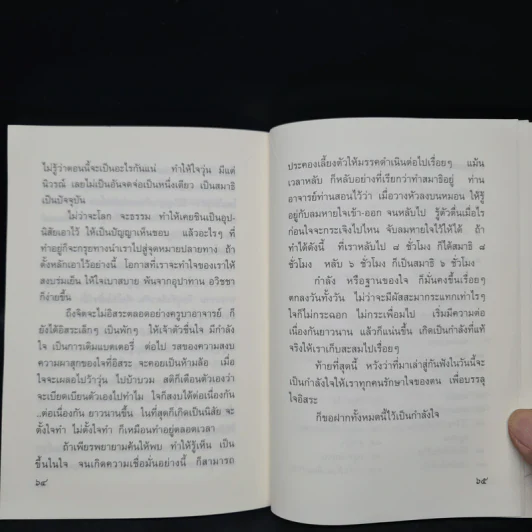 ไม่รู้ว่าตอนนี้จะเป็นอะไรกันแน่ ทำให้ใจวุ่น มีแต่
นิวรณ์ เลยไม่เป็นอันจดจ่อเป็นหนึ่งเดียว เป็นสมาธิ
เป็นปัจจุบัน
ไม่ว่าจะโลก จะธรรม ทำให้เคยชินเป็นอุป-
นิสัยเอาไว้ ให้เป็นปัญญาเห็นชอบ แล้วอะไรๆ ที่
ทำอยู่ก็จะกรุยทางนำเราไปสู่จุดหมายปลายทาง ถ้า
ตั้งหลักเอาไว้อย่างนี้ โอกาสที่เราจะทำใจของเราให้
สงบร่มเย็น ให้ใจเบาสบาย พ้นจากอุปาทาน อวิชชา
ก็ง่ายขึ้น
ถึงจิตจะไม่อิสระตลอดอย่างครูบาอาจารย์ ก็
ยังได้อิสระเล็กๆ เป็นพักๆ ให้เจ้าตัวชื่นใจ มีกำลัง
ใจ เป็นการเติมแบตเตอรี่ ต่อไป รสของความสงบ
ความผาสุกของใจที่อิสระ จะคอยเป็นห้ามล้อ เมื่อ
ใจจะเผลอไปว้าวุ่น ไปบ้าบวม สติก็เตือนตัวเองว่า
จะเบียดเบียนตัวเองไปทำไม ใจก็สงบได้ต่อเนื่องกัน
..ต่อเนื่องกัน ยาวนานขึ้น ในที่สุดก็เกิดเป็นนิสัย จะ
ตั้งใจทำ ไม่ตั้งใจทำ ก็เหมือนทำอยู่ตลอดเวลา
ถ้าเพียรพยายามค้นให้พบ ทำให้รู้เห็น เป็น
ขึ้นในใจ จนเกิดความเชื่อมั่นอย่างนี้ ก็สามารถ
๖๔
ประคองเลี้ยงตัวให้มรรคดำเนินต่อไปเรื่อยๆ แม้น
เวลาหลับ ก็หลับอย่างที่เรียกว่าทำสมาธิอยู่ ท่าน
อาจารย์ท่านสอนไว้ว่า เมื่อวางหัวลงบนหมอน ให้รู้
อยู่กับลมหายใจเข้า-ออก จนหลับไป รู้ตัวตื่นเมื่อไร
ก่อนใจจะกระเจิงไปไหน จับลมหายใจไว้ให้ได้ ถ้า
ทำได้ดังนี้ ที่เราหลับไป ๘ ชั่วโมง ก็ได้สมาธิ ๘
ชั่วโมง หลับ ๖ ชั่วโมง ก็เป็นสมาธิ ๖ ชั่วโมง
กำลัง หรือฐานของใจ ก็มั่นคงขึ้นเรื่อยๆ
ตกลงวันทั้งวัน ไม่ว่าจะมีผัสสะมากระแทกเท่าไรๆ
ใจก็ไม่กระฉอก ไม่กระเพื่อมไป เริ่มมีความต่อ
เนื่องกันยาวนาน แล้วก็แน่นขึ้น เกิดเป็นกำลังที่แท้
จริงให้เราเก็บสะสมไปเรื่อยๆ
ท้ายที่สุดนี้ หวังว่าที่มาเล่าสู่กันฟังในวันนี้จะ
เป็นกำลังใจให้เราทุกคนรักษาใจของตน เพื่อบรรลุ
ใจอิสระ
ก็ขอฝากทั้งหมดนี้ไว้เป็นกำลังใจ
๖๕